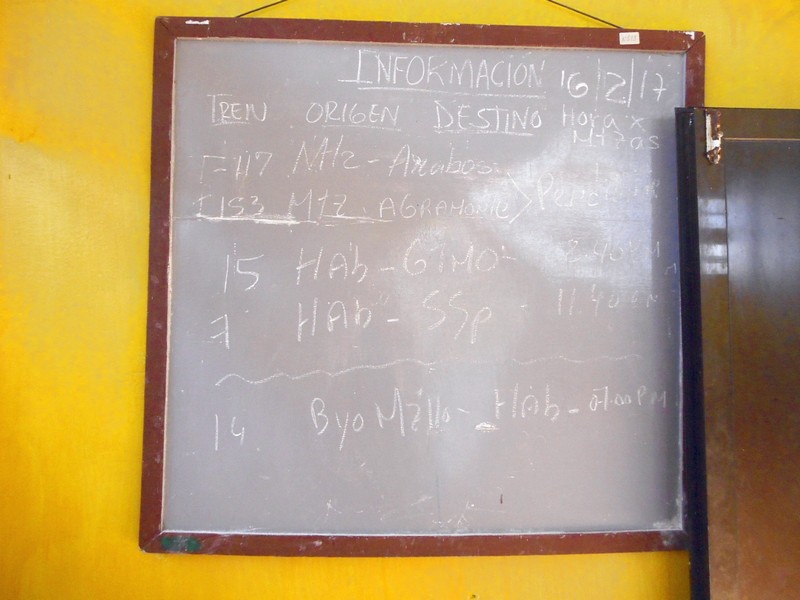 INFORMACIÓN 16/2/17
TREN ORIGEN DESTINO Hora x
Mtzas
T-117 Mtz - Arabos
T 153 Mtz. AGRAMONTE
15 HAb - GTMO - 8.40 PM
7 HAb - SSp - 11.40
14 Byo Mzllo - HAb - 07:00 PM